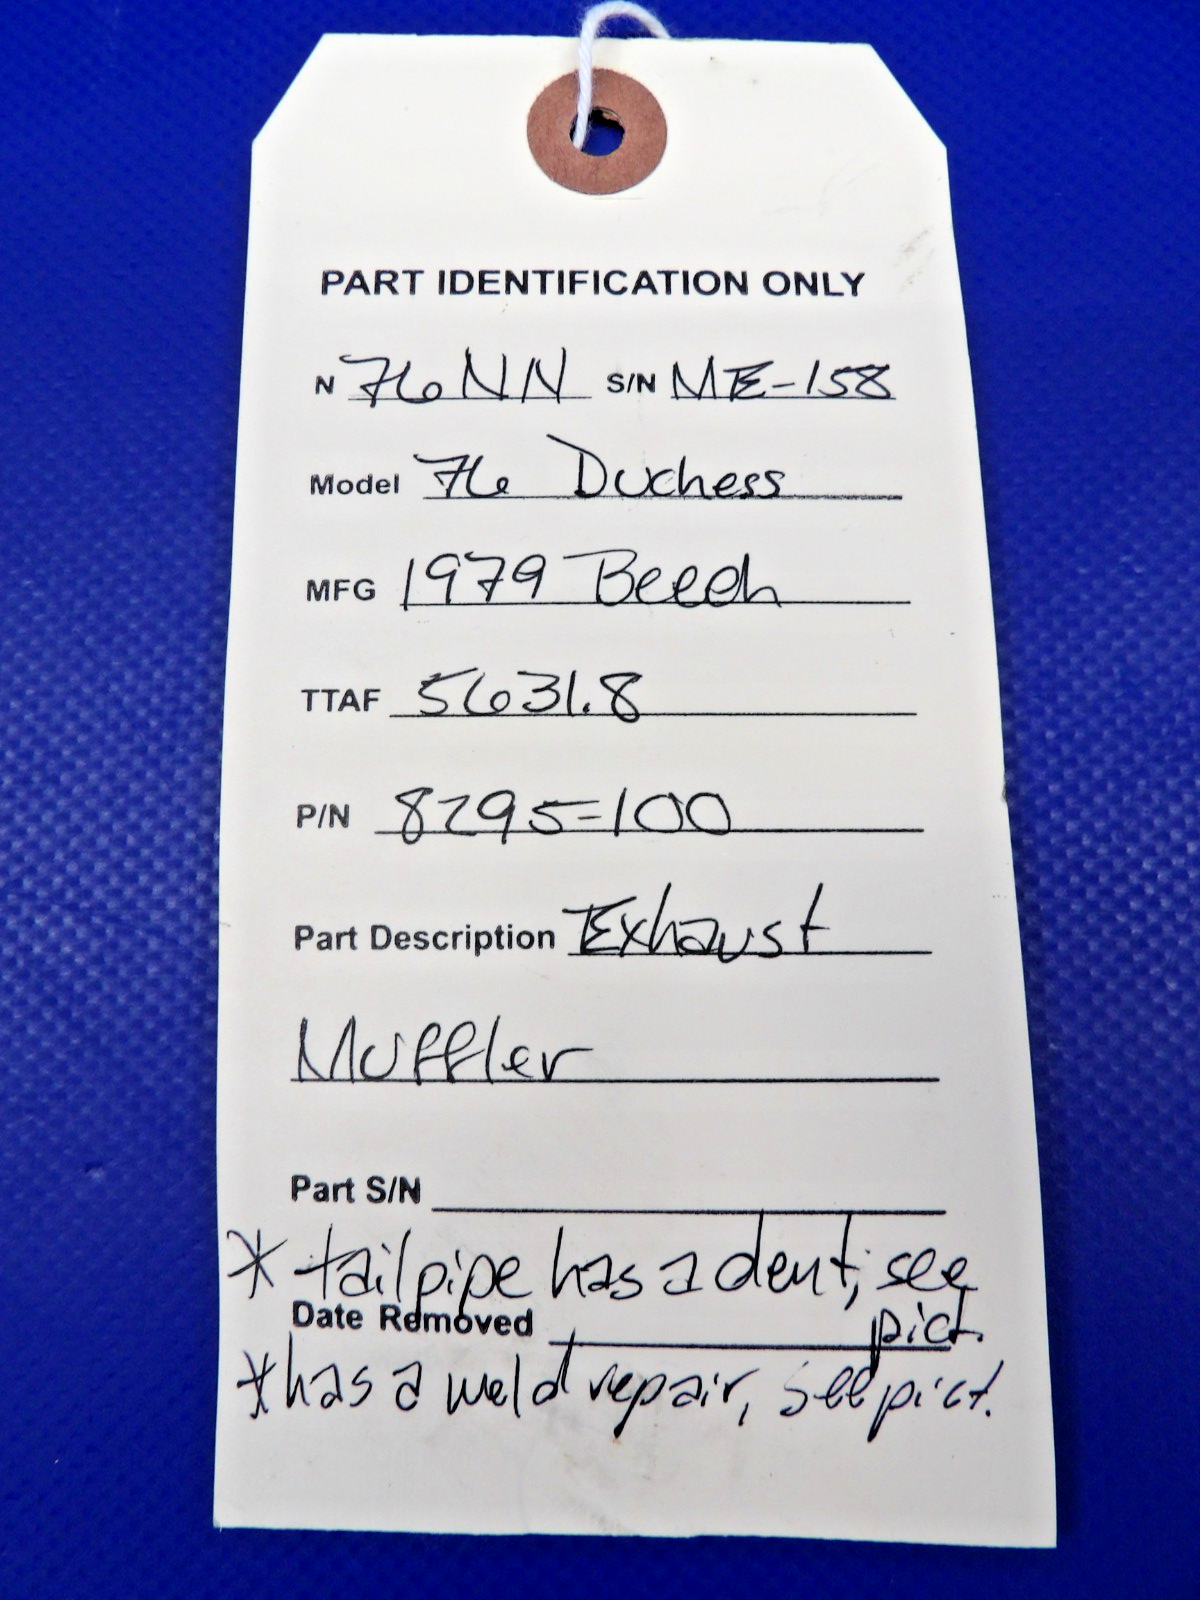 PART IDENTIFICATION ONLY
N 76NN S/N ME-158
Model 76 Duchess
MFG 1979 Beech
TTAF 5631.8
P/N 8295-100
Part Description Exhaust
Muffler
Part S/N
* tailpipe has a dent, see
pict.
Date Removed
* has a weld repair, see pict.